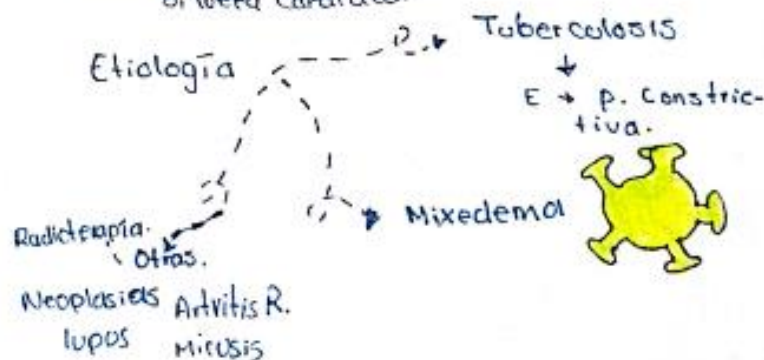 Etiología
Tuberculosis
E → p. Constric-
tiva.
Mixedema
Radioterapia.
Otras.
Neoplasias Artritis R.
lupos Micosis